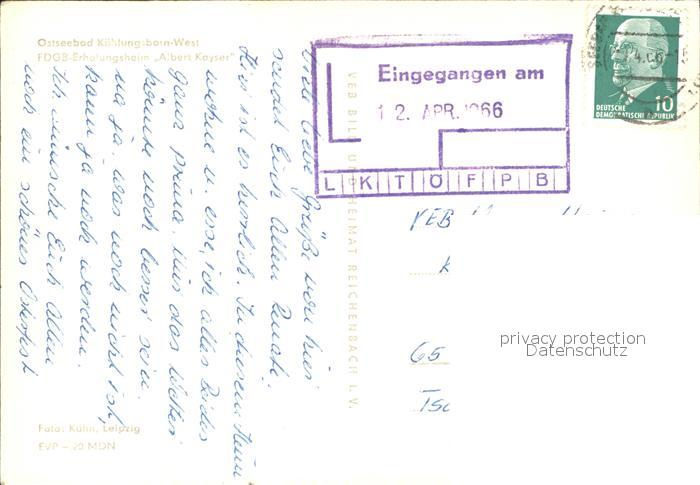 Ostseebad Kühlungsborn-West
FDGB-Erholungsheim „Albert Kayser"
Viele liebe Grüße von hier
sendet Euch Allen
Hier ist es herrlich. In diesem Heim
u. esse, ich alles
Ganz prima. Nur das Wetter
könnte noch besser sein.
na ja, was noch nicht ist,
kann ja noch werden.
Ich wünsche Euch Allen
noch ein schönes Osterfest
Foto: Kühn, Leipzig
EVP – 20 MDN
VEB BILD UND HEIMAT REICHENBACH I. V.
Eingegangen am
12. APR. 1966
L K T Ö F P B
10
DEUTSCHE
DEMOKRATISCHE REPUBLIK
VEB
65
privacy protection
Datenschutz